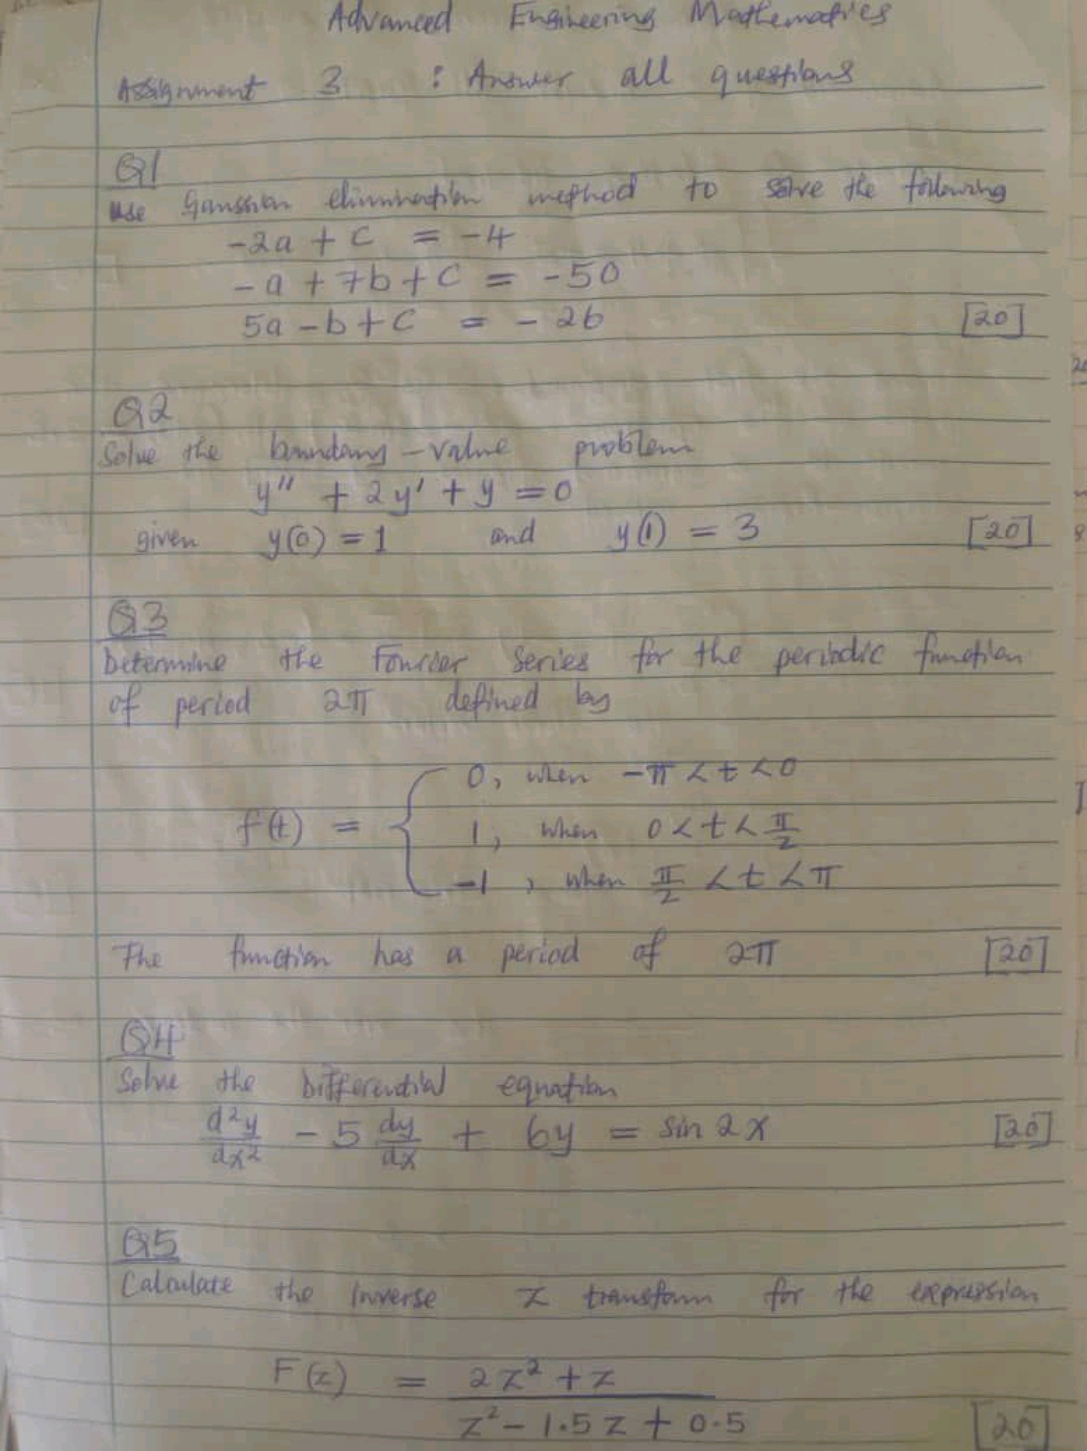 Advanced Engineering Mathematics
Assignment 3 : Answer all questions
Q1
use Gaussian elimination method to solve the following
-2a + c = -4
-a + 7b + c = -50
5a - b + c = - 26 [20]
Q2
Solve the boundary - value problem
y'' + 2y' + y = 0
given y(0) = 1 and y(1) = 3 [20]
Q3
Determine the Fourier Series for the periodic function
of period 2π defined by
0, when -π < t < 0
f(t) = { 1, when 0 < t < π/2
-1, when π/2 < t < π
The function has a period of 2π [20]
Q4
Solve the Differential equation
d²y/dx² - 5 dy/dx + 6y = sin 2x [20]
Q5
Calculate the Inverse Z transform for the expression
F(z) = 2z² + z / z² - 1.5z + 0.5 [20]